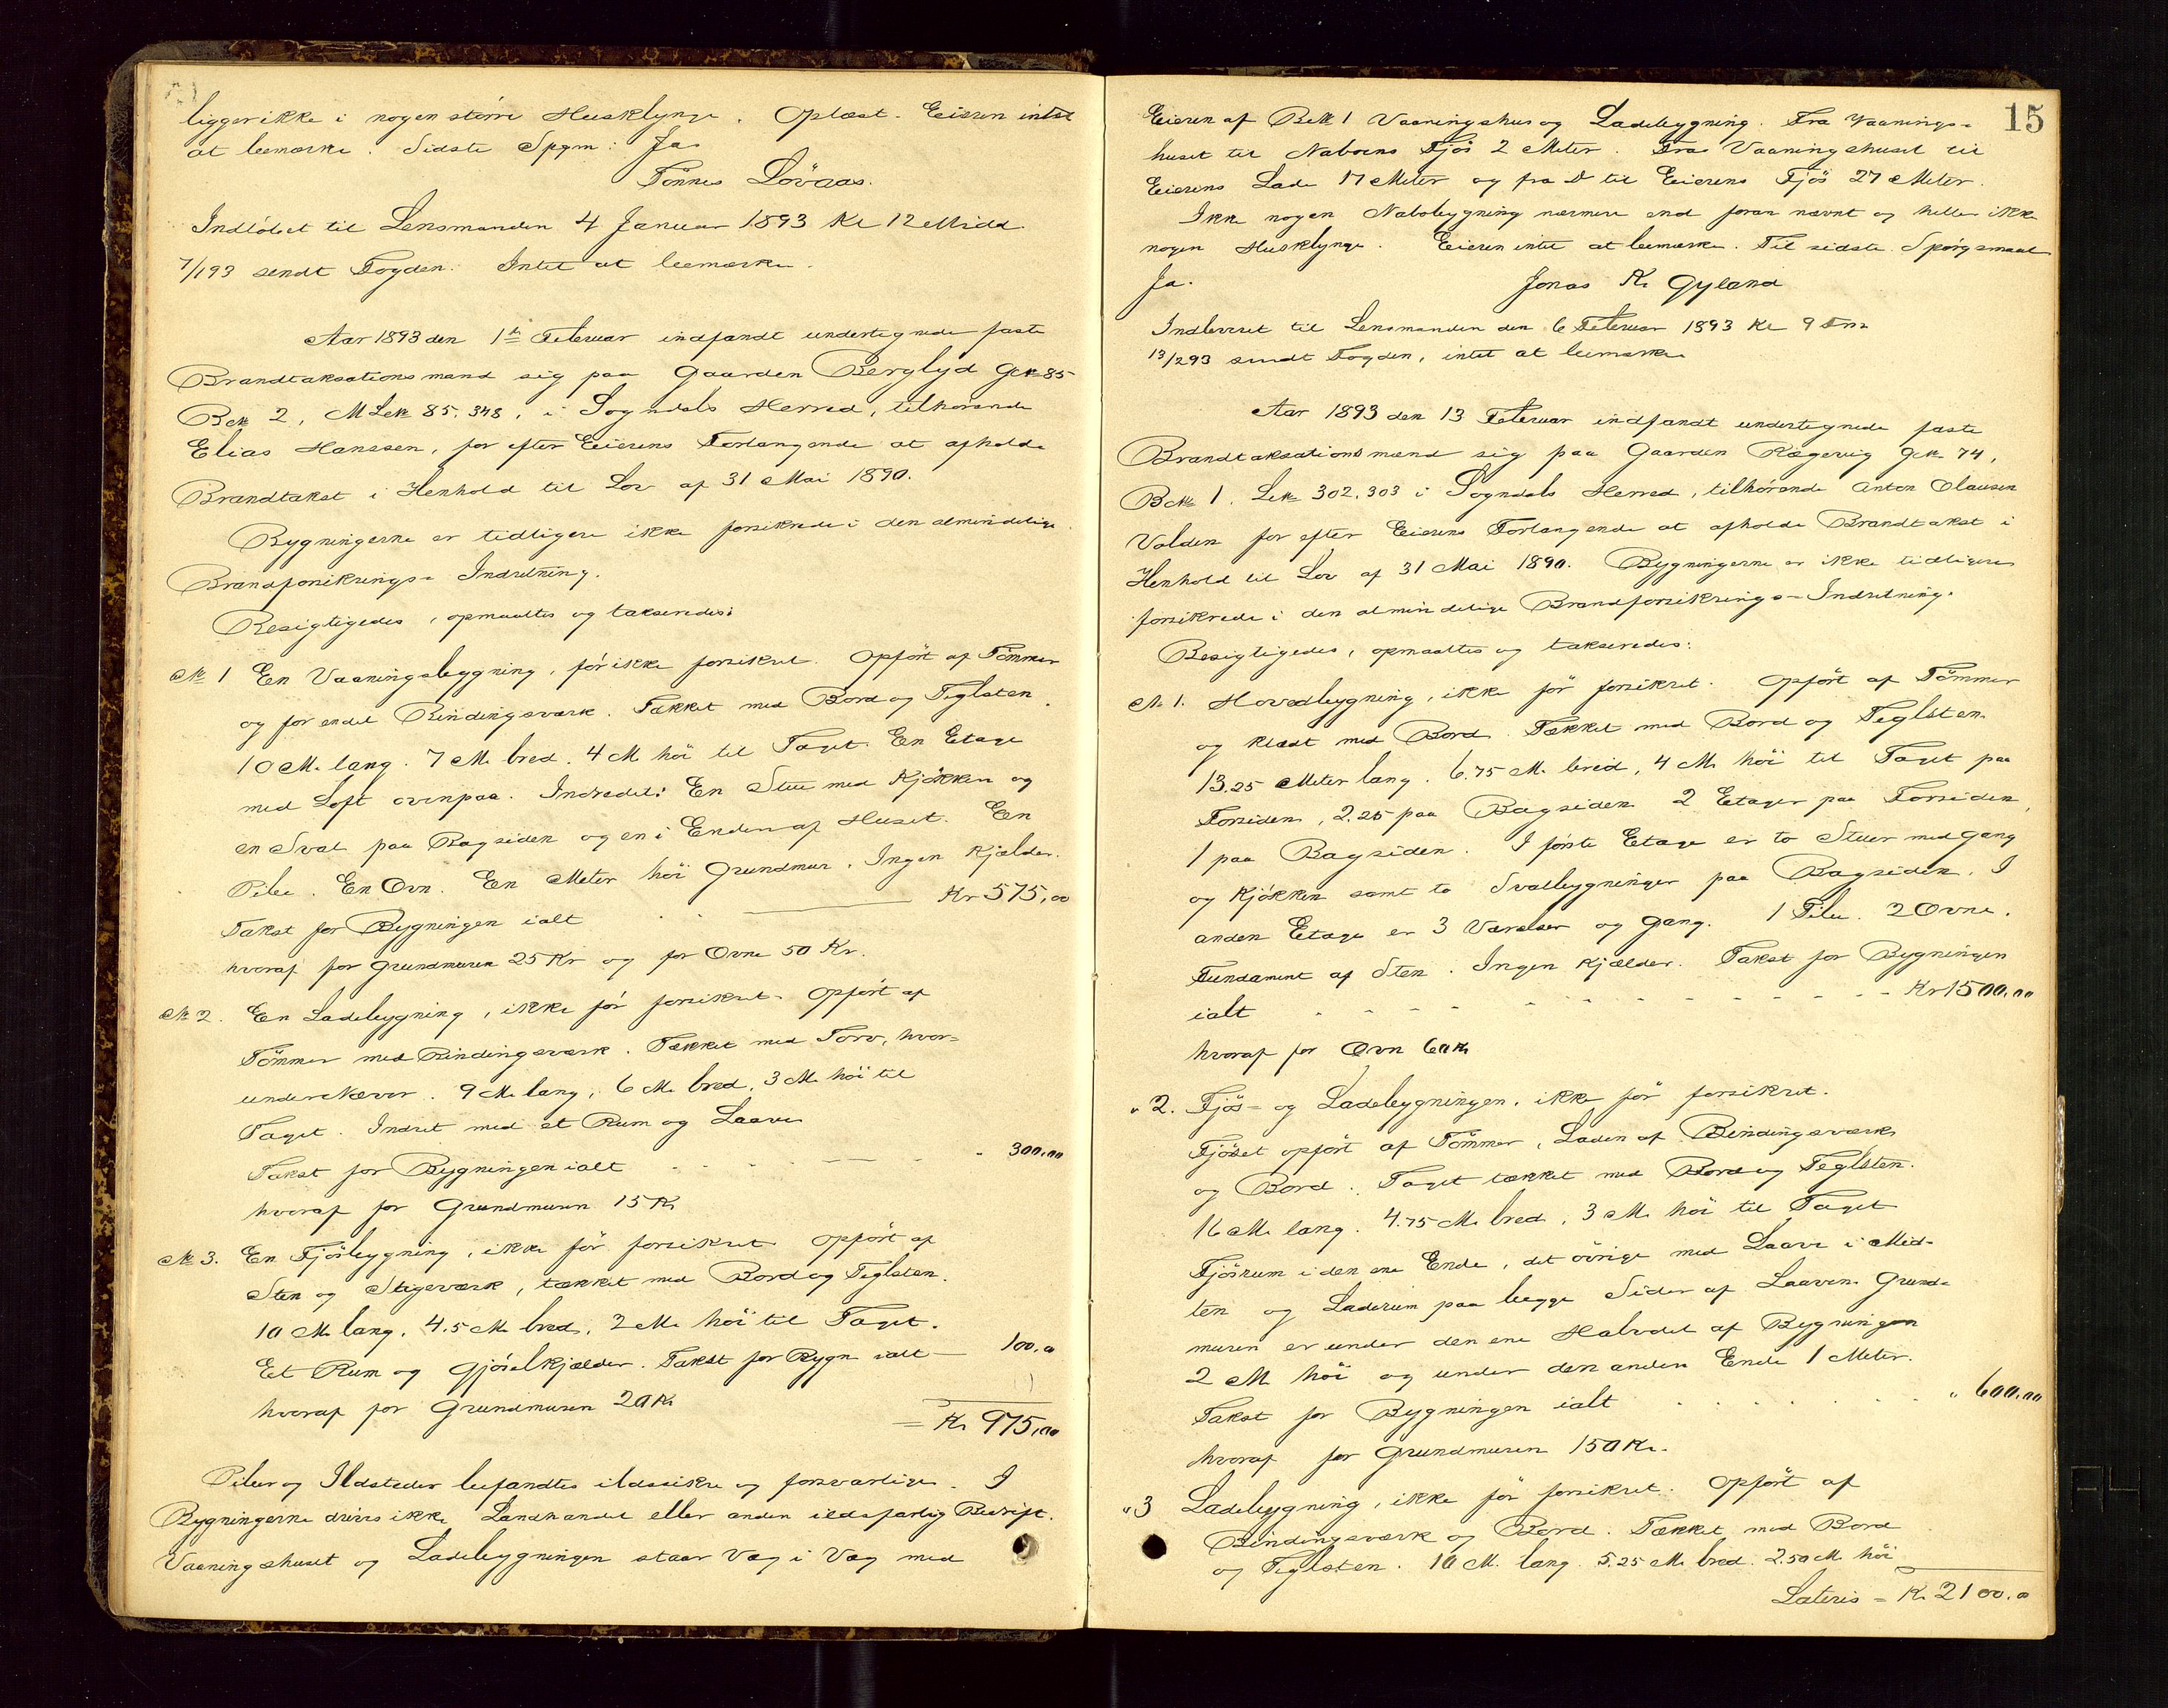 ligger ikke i nogen större Husklynge. Oplæst. Eieren intet
at bemærke. Sidste Spgm: Ja
Tönnes Lövaas.
Indlöbet til Lensmanden 4 Januar 1893 Kl 12 Midd.
7/1 93 sendt Fogden. Intet at bemærke.
Aar 1893 den 1ste Februar indfandt undertegnede faste
Brandtaksationsmænd sig paa Gaarden Berglyd Gr№ 85
B№ 2, M L№ 85.348, i Sogndals Herred, tilhörende
Elias Hanssen, for efter Eierens Forlangende at afholde
Brandtakst i Henhold til Lov af 31 Mai 1890.
Bygningerne er tidligere ikke forsikrede i den almindelige
Brandforsikrings- Indretning.
Besigtigedes, opmaaltes og takseredes:
№ 1 En Vaaningsbygning, för ikke forsikret. Opfört af Tömmer
og for endel Bindingsværk. Tækket med Bord og Teglsten.
10 M. lang. 7 M. bred. 4 M höi til Taget. En Etage
med Loft ovenpaa. Indredet: En Stue med Kjökken og
en Sval paa Bagsiden og en i Enden af Huset. En
Pibe. En Ovn. En Meter höi Grundmur. Ingen Kjælder.
Takst for Bygningen ialt Kr 575,00
hvoraf for Grundmuren 25 Kr og for Ovne 50 Kr.
№ 2. En Ladebygning, ikke för forsikret. Opfört af
Tömmer med Bindingsværk. Tækket med Torv, hvor-
under Næver. 9 M. lang, 6 M. bred, 3 M. höi til
Taget. Indret med et Rum og Laave
Takst for Bygningen ialt " 300,00
hvoraf for Grundmuren 15 Kr
№ 3. En Fjösbygning, ikke för forsikret opfört af
Sten og Stageværk, tækket med Bord og Teglsten.
10 M. lang. 4.5 M. bred, 2 M. höi til Taget.
Et Rum og Gjöselkjælder. Takst for Bygn ialt 100,0
hvoraf for Grundmuren 20 Kr
= Kr 975,00
Piber og Ildsteder befandtes ildssikre og forsvarlige. I
Bygningerne drives ikke Landhandel eller anden ildsfarlig Bedrift.
Vaaningshuset og Ladebygningen staar Væg i Væg med
15
Eieren af B№ 1 Vaaningshus og Ladebygning. Fra Vaanings-
huset til Naboens Fjös 2 Meter. Fra Vaaningshuset til
Eierens Lade 17 Meter og fra D til Eierens Fjös 27 Meter.
Ikke nogen Nabobygning nærmere end foran nævnt og heller ikke
nogen Husklynge. Eieren intet at bemærke. Til sidste Spörgsmaal
Ja. Jonas K. Gyland
Indleveret til Lensmanden den 6 Februar 1893 Kl 9 Fm
13/2 93 sendt Fogden, intet at bemærke
Aar 1893 den 13 Februar indfandt undertegnede faste
Brandtaksationsmænd sig paa Gaarden Rægevig G№ 74,
B№ 1. L№ 302.303 i Sogndals Herred, tilhörende Anton Olausen
Valden for efter Eierens Forlangende at afholde Brandtakst i
Henhold til Lov af 31 Mai 1890. Bygningerne er ikke tidligere
forsikrede i den almindelige Brandforsikrings-Indretning.
Besigtigedes, opmaaltes og takseredes:
№ 1. Hovedbygning, ikke för forsikret. Opfört af Tömmer
og klædt med Bord. Tækket med Bord og Teglsten.
13.25 Meter lang. 6.75 M. bred, 4 M. höi til Taget paa
Forsiden, 2.25 paa Bagsiden 2 Etager paa Forsiden,
1 paa Bagsiden. I förste Etage er to Stuer med Gang
og Kjökken samt to Svalbygninger paa Bagsiden. I
anden Etage er 3 Værelser og Gang. 1 Pibe. 2 Ovne.
Fundament af Sten. Ingen Kjælder. Takst for Bygningen
ialt Kr 1500,00
hvoraf for Ovn 60 Kr
" 2. Fjös- og Ladebygningen, ikke för forsikret.
Fjöset opfört af Tömmer, Laden af Bindingsværk
og Bord. Taget tækket med Bord og Teglsten.
16 M. lang. 4.75 M. bred, 3 M. höi til Taget
Fjösrum i den ene Ende, det övrige med Laave i Mid-
ten og Laderum paa begge Sider af Laaven. Grund-
muren er under den ene Halvdel af Bygningen
2 M höi og under den anden Ende 1 Meter.
Takst for Bygningen ialt " 600,00
hvoraf for Grundmuren 150 Kr.
" 3 Ladebygning, ikke för forsikret. Opfört af
Bindingsværk og Bord. Tækket med Bord
og Teglsten. 10 M. lang. 5.25 M. bred. 2.50 M. höi
Lateris = Kr. 2100,0